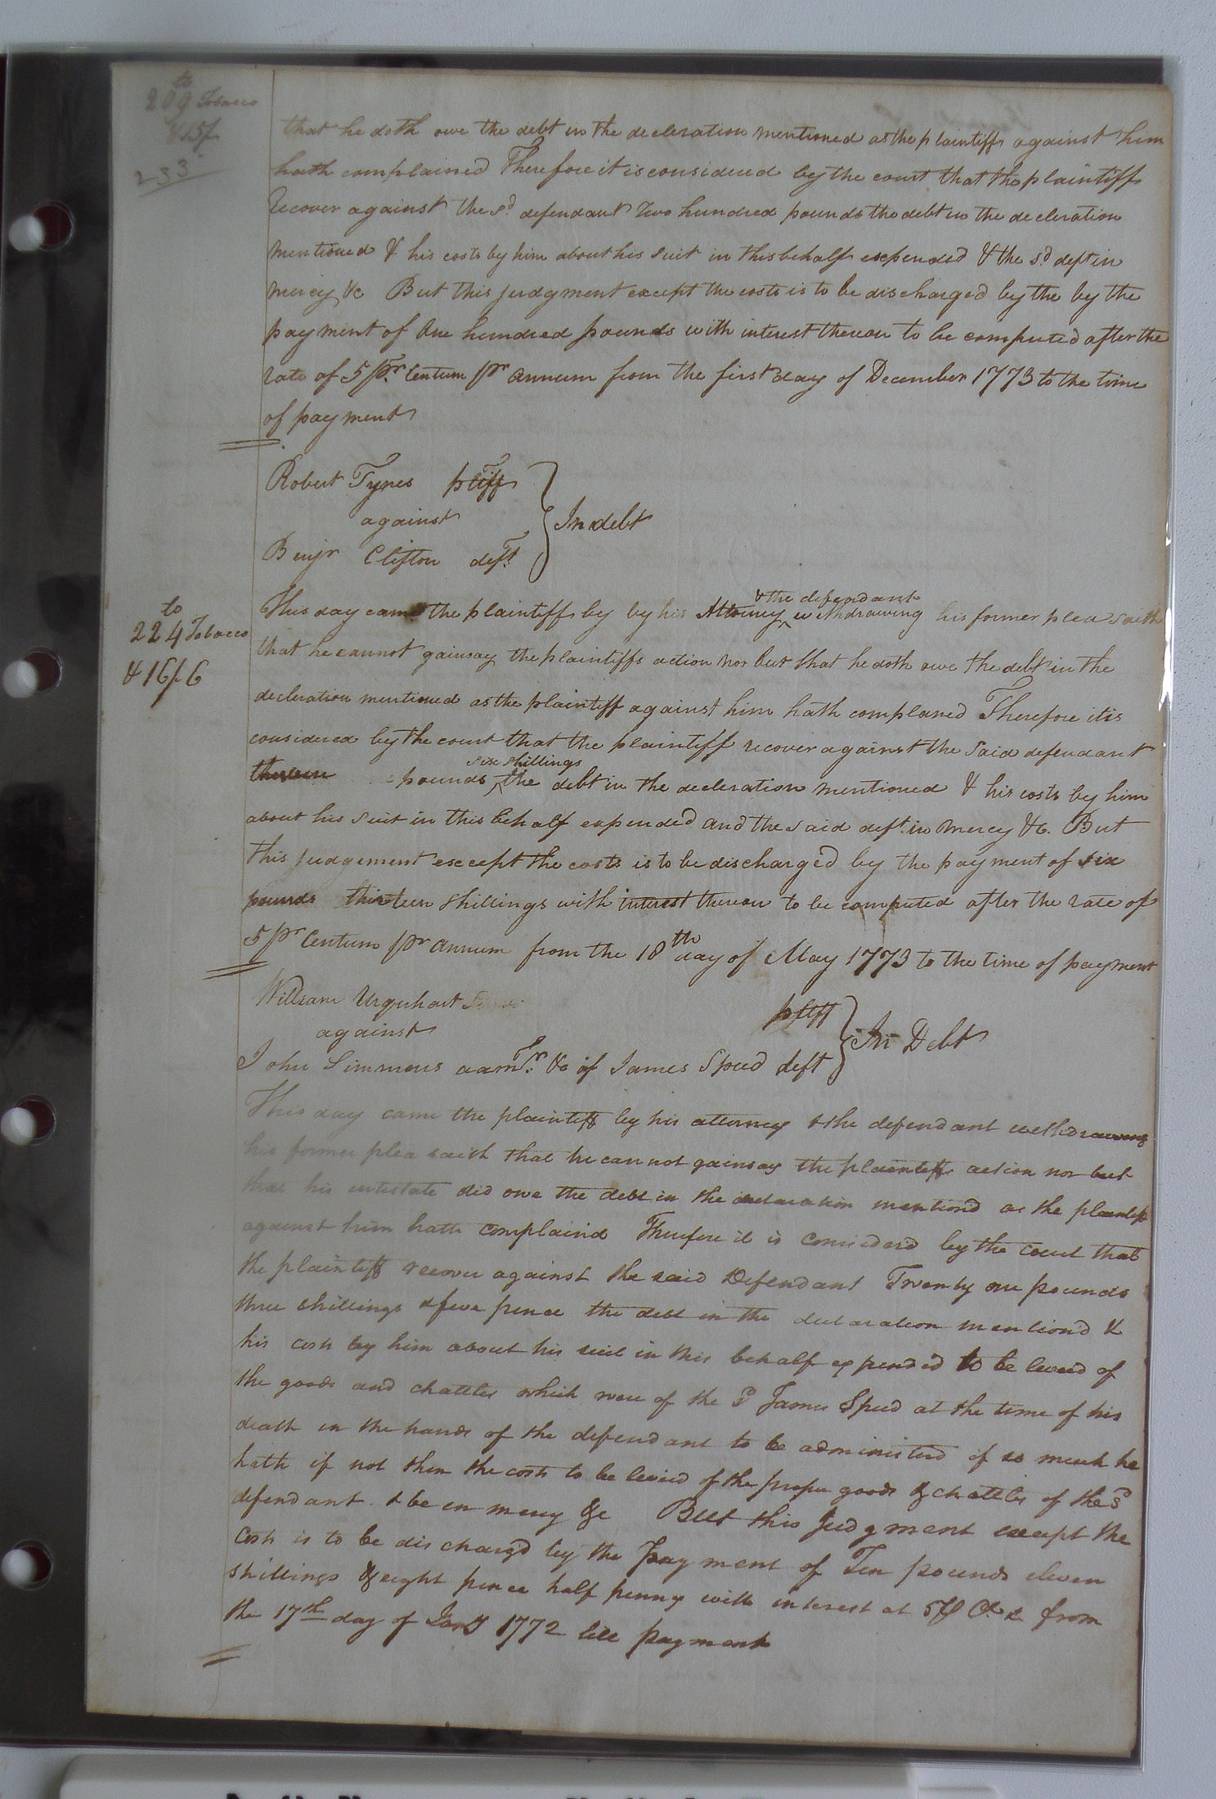 to
209 Tobacco
& 15/
233
that he doth owe the debt in the decleration mentioned as the plaintiff against him
hath complained Therefore it is considered by the court that the plaintiff
recover against the sd defendant Two hundred pounds the debt in the decleration
mentioned & his costs by him about his suit in this behalf expended & the sd deft in
mercy &c But this judgment except the costs is to be discharged by the by the
payment of One hundred pounds with interest thereon to be computed after the
rate of 5 pr Centum pr annum from the first day of December 1773 to the time
of payment
Robert Tynes pltiff
against
Benjr Clifton deft
In debt
to
224 Tobacco
& 16/6
& the defendant
This day came the plaintiff by by his Attorney withdrawing his former plea saith
that he cannot gainsay the plaintiffs action nor but that he doth owe the debt in the
decleration mentioned as the plaintiff against him hath complaned Therefore it is
considered by the court that the plaintiff recover against the said defendant
six shillings
pounds the debt in the decleration mentioned & his costs by him
about his suit in this behalf expended and the said deft in mercy &c. But
this judgement except the costs is to be discharged by the payment of six
pounds thirteen shillings with interest thereon to be computed after the rate of
5 pr Centum pr annum from the 18th day of May 1773 to the time of payment
William Urquhart pltff
against
John Simmons admr. &c of James Speed deft
In Debt
This day came the plaintiff by his attorney & the defendant withdrawing
his former plea saith that he can not gainsay the plaintiffs action nor but
that his intestate did owe the debt in the declaration mentiond as the plaintiff
against him hath complaind Therefore it is considerd by the court that
the plaintiff recover against the said Defendant Twenty one pounds
three shillings & five pence the debt in the declaration mentiond &
his costs by him about his suit in this behalf expended to be levied of
the goods and chattles which were of the sd James Speed at the time of his
death in the hands of the defendant to be administerd if so much he
hath if not then the costs to be levied of the proper goods & chattles of the sd
defendant & be in mercy &c But this Judgment except the
costs is to be dischargd by the payment of Ten pounds eleven
shillings & eight pence half penny with interest at 5 from
the 17th day of Jany 1772 till payment